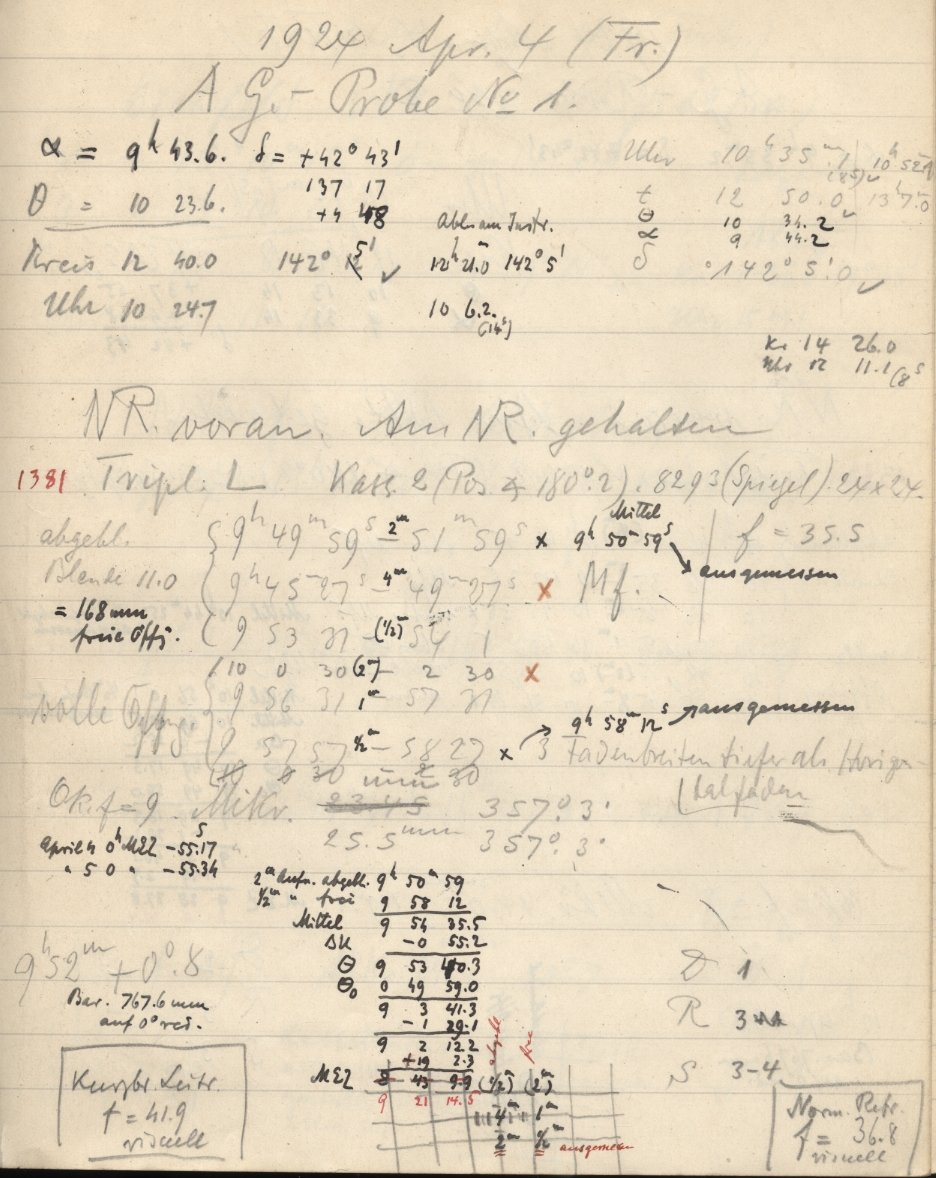 1924 Apr. 4 (Fr.)
A G.- Probe No 1.
α = 9h 43.6. δ = +42° 43'
137 17
θ = 10 23.6. +4 48
Kreis 12 40.0 142° 5' ✓
Uhr 10 24.7
Abl. am Instr.
12h 21.0 142° 5'
10 6.2.
(14s)
Uhr 10h 35m.1 10h 52m
(8s) ✓
t 12 50.0 13h 7.0
θ 10 34.2 ✓
α 9 44.2
δ 142° 5'.0 ✓
Kr 14 26.0
Uhr 12 11.1 (8s
NR. voran. Am NR. gehalten
1381 Tripl. L Kass. 2 (Pos. ∡ 180°.2). 8293 (Spiegel). 24x24.
abgebl.
Blende 11.0
= 168 mm
freie Öffg.
9h 49m 59s 2m 51m 59s x
Mittel
9h 50m 59s
ausgemessen
f = 35.5
9h 45m 27s - 4m 49m 27s x Mf.
9 53 31 - (1/2m) 54 1
10 0 30 (2m) - 2 30 x
volle Öffng.
9 56 31 1m - 57 31
9 57 57 1/2m - 58 27 x
9h 58m 12s ausgemessen
3 Fadenbreiten tiefer als Horizon-
talfaden
10 0 30 2 30
Ok. f = 9 Mikr. 23.45 mm 357°.3
25.5mm 357°.3
April 4 0h MEZ -55.17s
" 5 0 " -55.34
2m Aufn. abgebl. 9h 50m 59
1/2m " frei 9 58 12
Mittel 9 54 35.5
ΔK -0 55.2
θ 9 53 40.3
θ₀ 0 49 59.0
9 3 41.3
-1 29.1
9 2 12.2
+19 2.3
MEZ
9 21 14.5
abgebl. frei
(1/2m) (2m)
4m 1m
2m 1/2m ausgemessen
9h 52m +0°.8
Bar. 767.6 mm
auf 0° red.
D 1
R 3
S 3-4
Kurzbr. Leitr.
f = 41.9
visuell
Norm. Refr.
f = 36.8
visuell